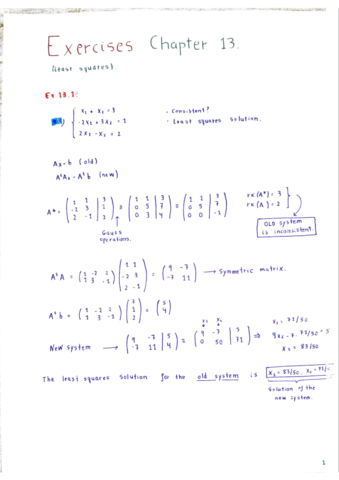 Exercises Chapter 13.
(least squares).
Ex 13.1:
x₁ + x₂ = 3
-2x₁ + 3x₂ = 1
2x₁ - x₂ = 2
- Consistent?
- Least squares solution.
Ax = b (old)
AᵗAx = Aᵗb (new)
A* = ( 1 1 | 3 ; -2 3 | 1 ; 2 -1 | 2 ) = ( 1 1 | 3 ; 0 5 | 7 ; 0 3 | 4 ) = ( 1 1 | 3 ; 0 5 | 7 ; 0 0 | -1 )
rk (A*) = 3
rk (A) = 2
Gauss operations.
OLD system is inconsistent
AᵗA = ( 1 -2 2 ; 1 3 -1 ) ( 1 1 ; -2 3 ; 2 -1 ) = ( 9 -7 ; -7 11 ) → Symmetric matrix.
Aᵗb = ( 1 -2 2 ; 1 3 -1 ) ( 3 ; 1 ; 2 ) = ( 5 ; 4 )
New system → ( 9 -7 | 5 ; -7 11 | 4 ) = ( 9 -7 | 5 ; 0 50 | 71 ) ⇒
x₁ x₂
9x₁ - 7 ·
x₁ = 83/50
The least squares solution for the old system is x₁ = 83/50,
solution of the new system.
1